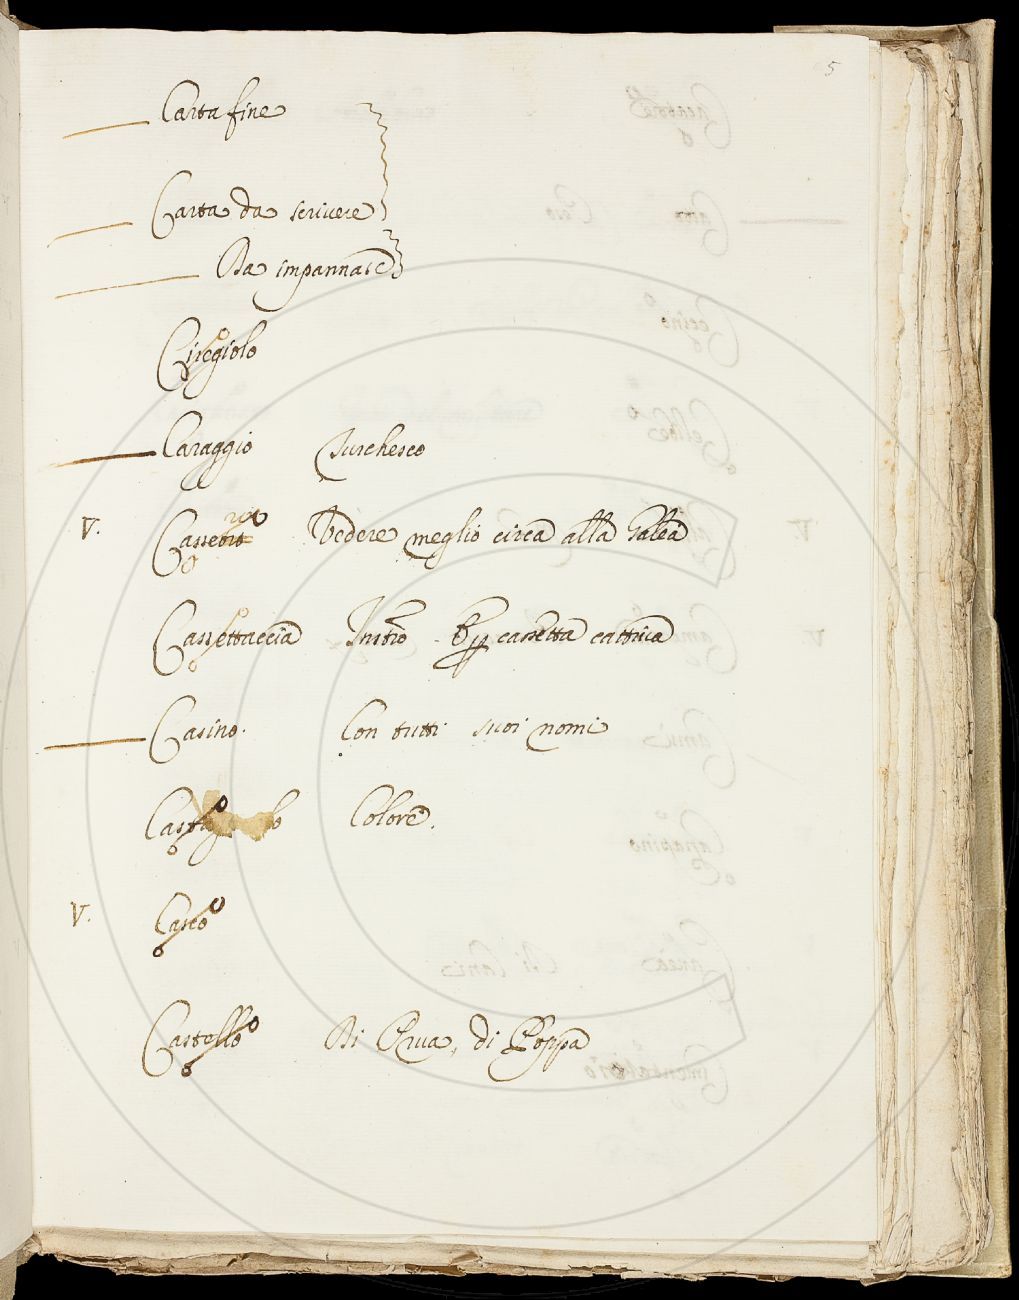 5
Carta fine
Carta da scrivere
Da impannate
Ciregiolo
Caraggio Turchesco
V. Vedere meglio circa alla Galea
Cassettaccia cassetta cattiva
Casino. Con tutti suoi nomi
Colore.
V. Casco
Castello Di Prua, di Poppa